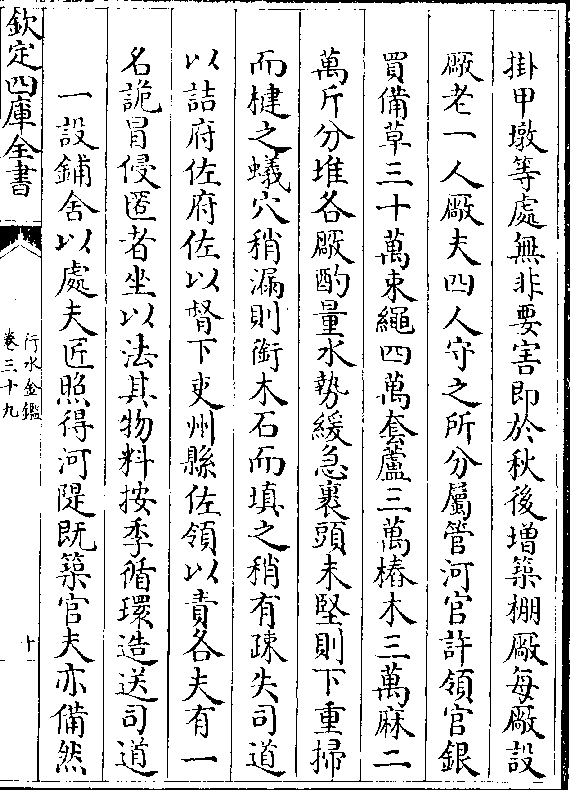 掛甲墩等處無非要害即於秋後增築棚厰每厰設
厰老一人厰夫四人守之所分屬管河官許領官銀
買備草三十萬束繩四萬套蘆三萬樁木三萬麻二
萬斤分堆各厰酌量水勢緩急裹頭未堅則下重掃
而楗之蟻穴稍漏則銜木石而填之稍有疎失司道
以詰府佐府佐以督下吏州縣佐領以責各夫有一
名詭冒侵匿者坐以法其物料按季循環造送司道
一設鋪舍以處夫匠照得河隄既築官夫亦備然
欽定四庫全書
行水金鑑
卷三十九
十